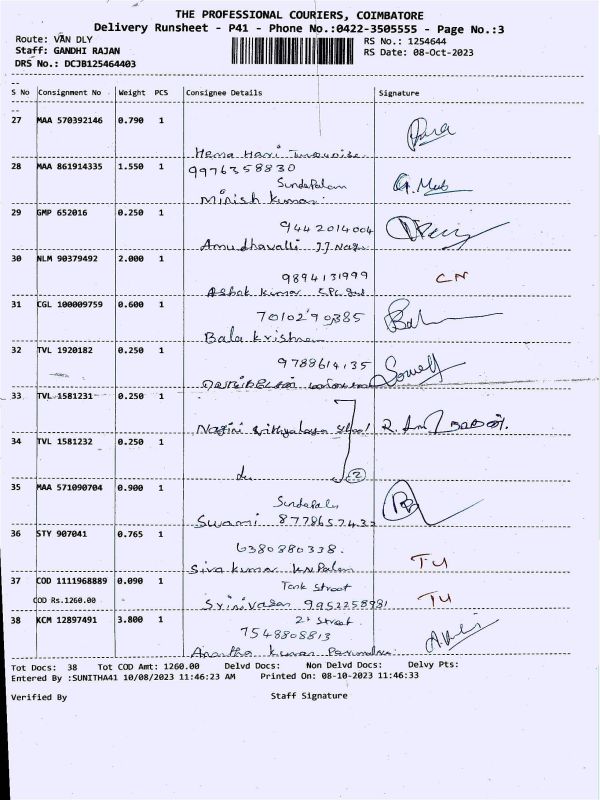 THE PROFESSIONAL COURIERS, COIMBATORE
Delivery Runsheet - P41 - Phone No.:0422-3505555 - Page No.:3
Route: VAN DLY
Staff: GANDHI RAJAN
DRS No.: DCJB125464403
RS No.: 1254644
RS Date: 08-Oct-2023
S No Consignment No Weight PCS Consignee Details Signature
27 MAA 570392146 0.790 1
Hema Hari
28 MAA 861914335 1.550 1 9976358830
Sundapalam
Minish Kumar.
29 GMP 652016 0.250 1
9442014004
Amudhavalli JJ Nagr
30 NLM 90379492 2.000 1
9894131999 CN
Ashok Kumar
31 CGL 100009759 0.600 1
7010290385
Bala Krishnan
32 TVL 1920182 0.250 1
9788614135
33 TVL 1581231 0.250 1
Nagini Vithyalaya School
34 TVL 1581232 0.250 1
do 2
35 MAA 571090704 0.900 1
Swami
36 STY 907041 0.765 1
6380880338.
Siva Kumar KN Palam TU
37 COD 1111968889 0.090 1
Tank Street
COD Rs.1260.00
Srinivasan TU
38 KCM 12897491 3.800 1
Street
7548808813
Anantha Kumar
Tot Docs: 38 Tot COD Amt: 1260.00 Delvd Docs: Non Delvd Docs: Delvy Pts:
Entered By :SUNITHA41 10/08/2023 11:46:23 AM Printed On: 08-10-2023 11:46:33
Verified By Staff Signature